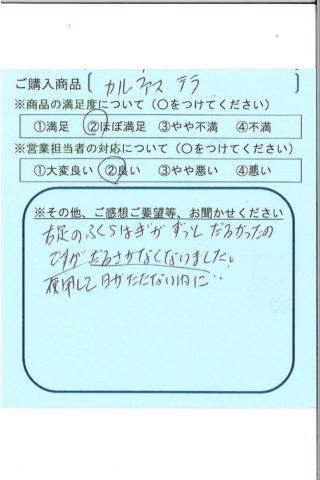 ご購入商品 〔 カルファス テラ
※商品の満足度について(○をつけてください)
①満足 ②ほぼ満足 ③やや不満 ④不満
※営業担当者の対応について(○をつけてください)
①大変良い ②良い ③やや悪い ④悪い
※その他、ご感想ご要望等、お聞かせください
右足のふくらはぎが ずっと だるかったの
ですが だるさがなくなりました。
使用して 日がたたない内に…